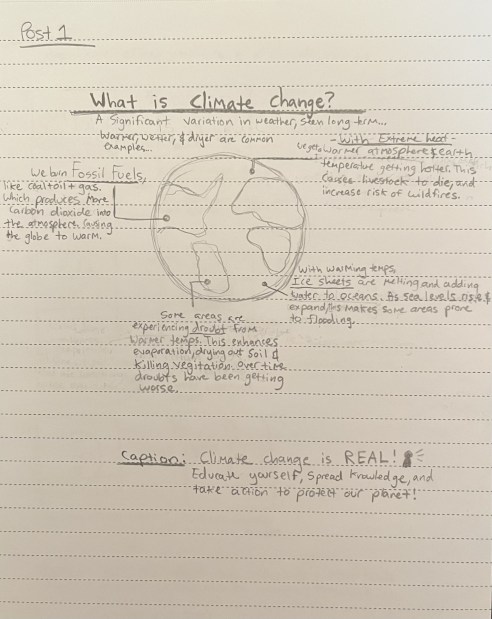 Post 1
What is Climate Change?
A Significant variation in weather, seen long-term...
Warmer, wetter, & dryer are common
examples...
- With Extreme heat -
warmer atmosphere & earth
temperature getting hotter. This
causes livestock to die, and
increase risk of wildfires.
We burn Fossil Fuels,
like coal+oil+gas.
which produces more
Carbon dioxide into
the atmosphere. Causing
the globe to warm.
With warming temps,
Ice sheets are melting and adding
water to oceans. As sea levels rise &
expand, this makes some areas prone
to flooding.
Some areas are
experiencing droubt from
warmer temps. This enhances
evaporation, drying out soil &
killing vegitation. Over time
droubts have been getting
worse.
Caption: Climate change is REAL!
Educate yourself, Spread knowledge, and
take action to protect our planet!